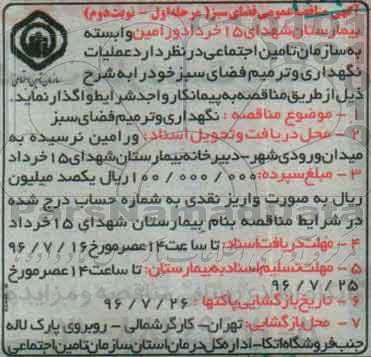 آگهی مناقصه عمومی فضای سبز( مرحله اول - نوبت دوم)
بیمارستان شهدای ۱۵ خرداد ورامین وابسته
به سازمان تامین اجتماعی در نظر دارد عملیات
نگهداری و ترمیم فضای سبز خود را به شرح
ذیل از طریق مناقصه به پیمانکار واجد شرایط واگذار نماید.
۱ - موضوع مناقصه : نگهداری و ترمیم فضای سبز
۲ - محل دریافت و تحویل اسناد: ورامین نرسیده به
میدان ورودی شهر- دبیرخانه بیمارستان شهدای ۱۵ خرداد
۳ - مبلغ سپرده: ۱۰۰/۰۰۰/۰۰۰ ریال یکصد میلیون
ریال به صورت واریز نقدی به شماره حساب درج شده
در شرایط مناقصه بنام بیمارستان شهدای ۱۵ خرداد
۴ - مهلت دریافت اسناد: تا ساعت ۱۴ عصر مورخ ۹۶/۷/۱۶
۵ - مهلت تسلیم اسناد به بیمارستان: تا ساعت ۱۴ عصر مورخ
۹۶/۷/۲۵
۶ - تاریخ بازگشایی پاکتها : ۹۶/۷/۲۶
۷ - محل بازگشایی: تهران- کارگر شمالی - روبروی پارک لاله
جنب فروشگاه اتکا- اداره کل درمان استان سازمان تامین اجتماعی
سازمان تامین اجتماعی